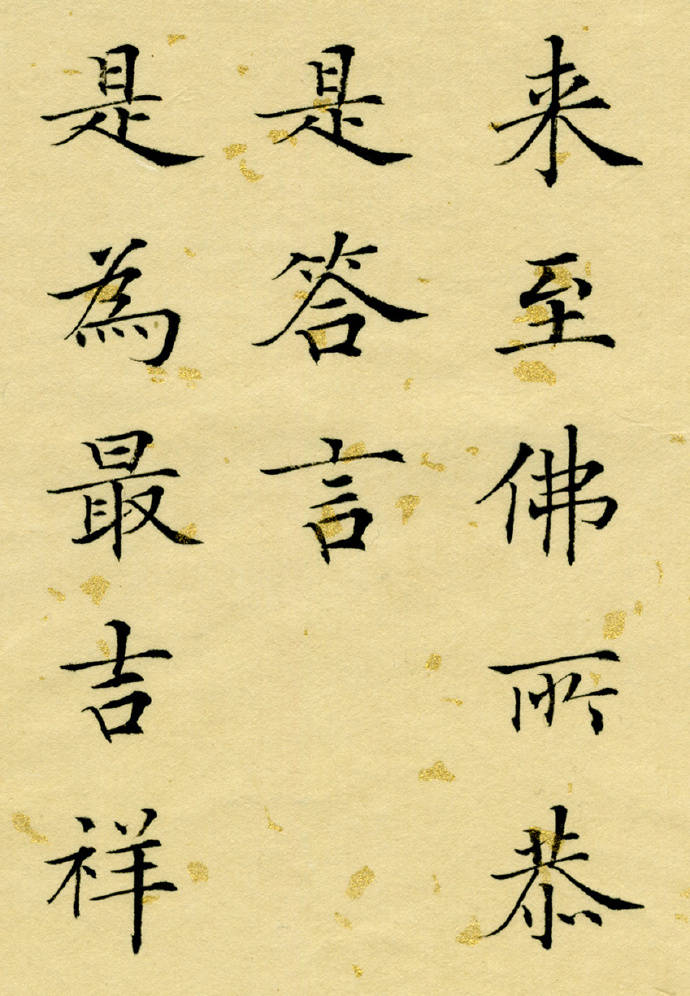 来至佛所恭
是答言
是為最吉祥